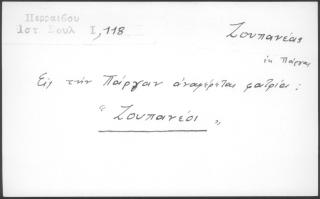 Περραιβου
Ιστ Σουλ Ι, 118
Ζουπανέας
ἐκ Πάργας
Εἰς τὴν Πάργαν ἀναφέρεται φατρία:
"Ζουπανέοι"